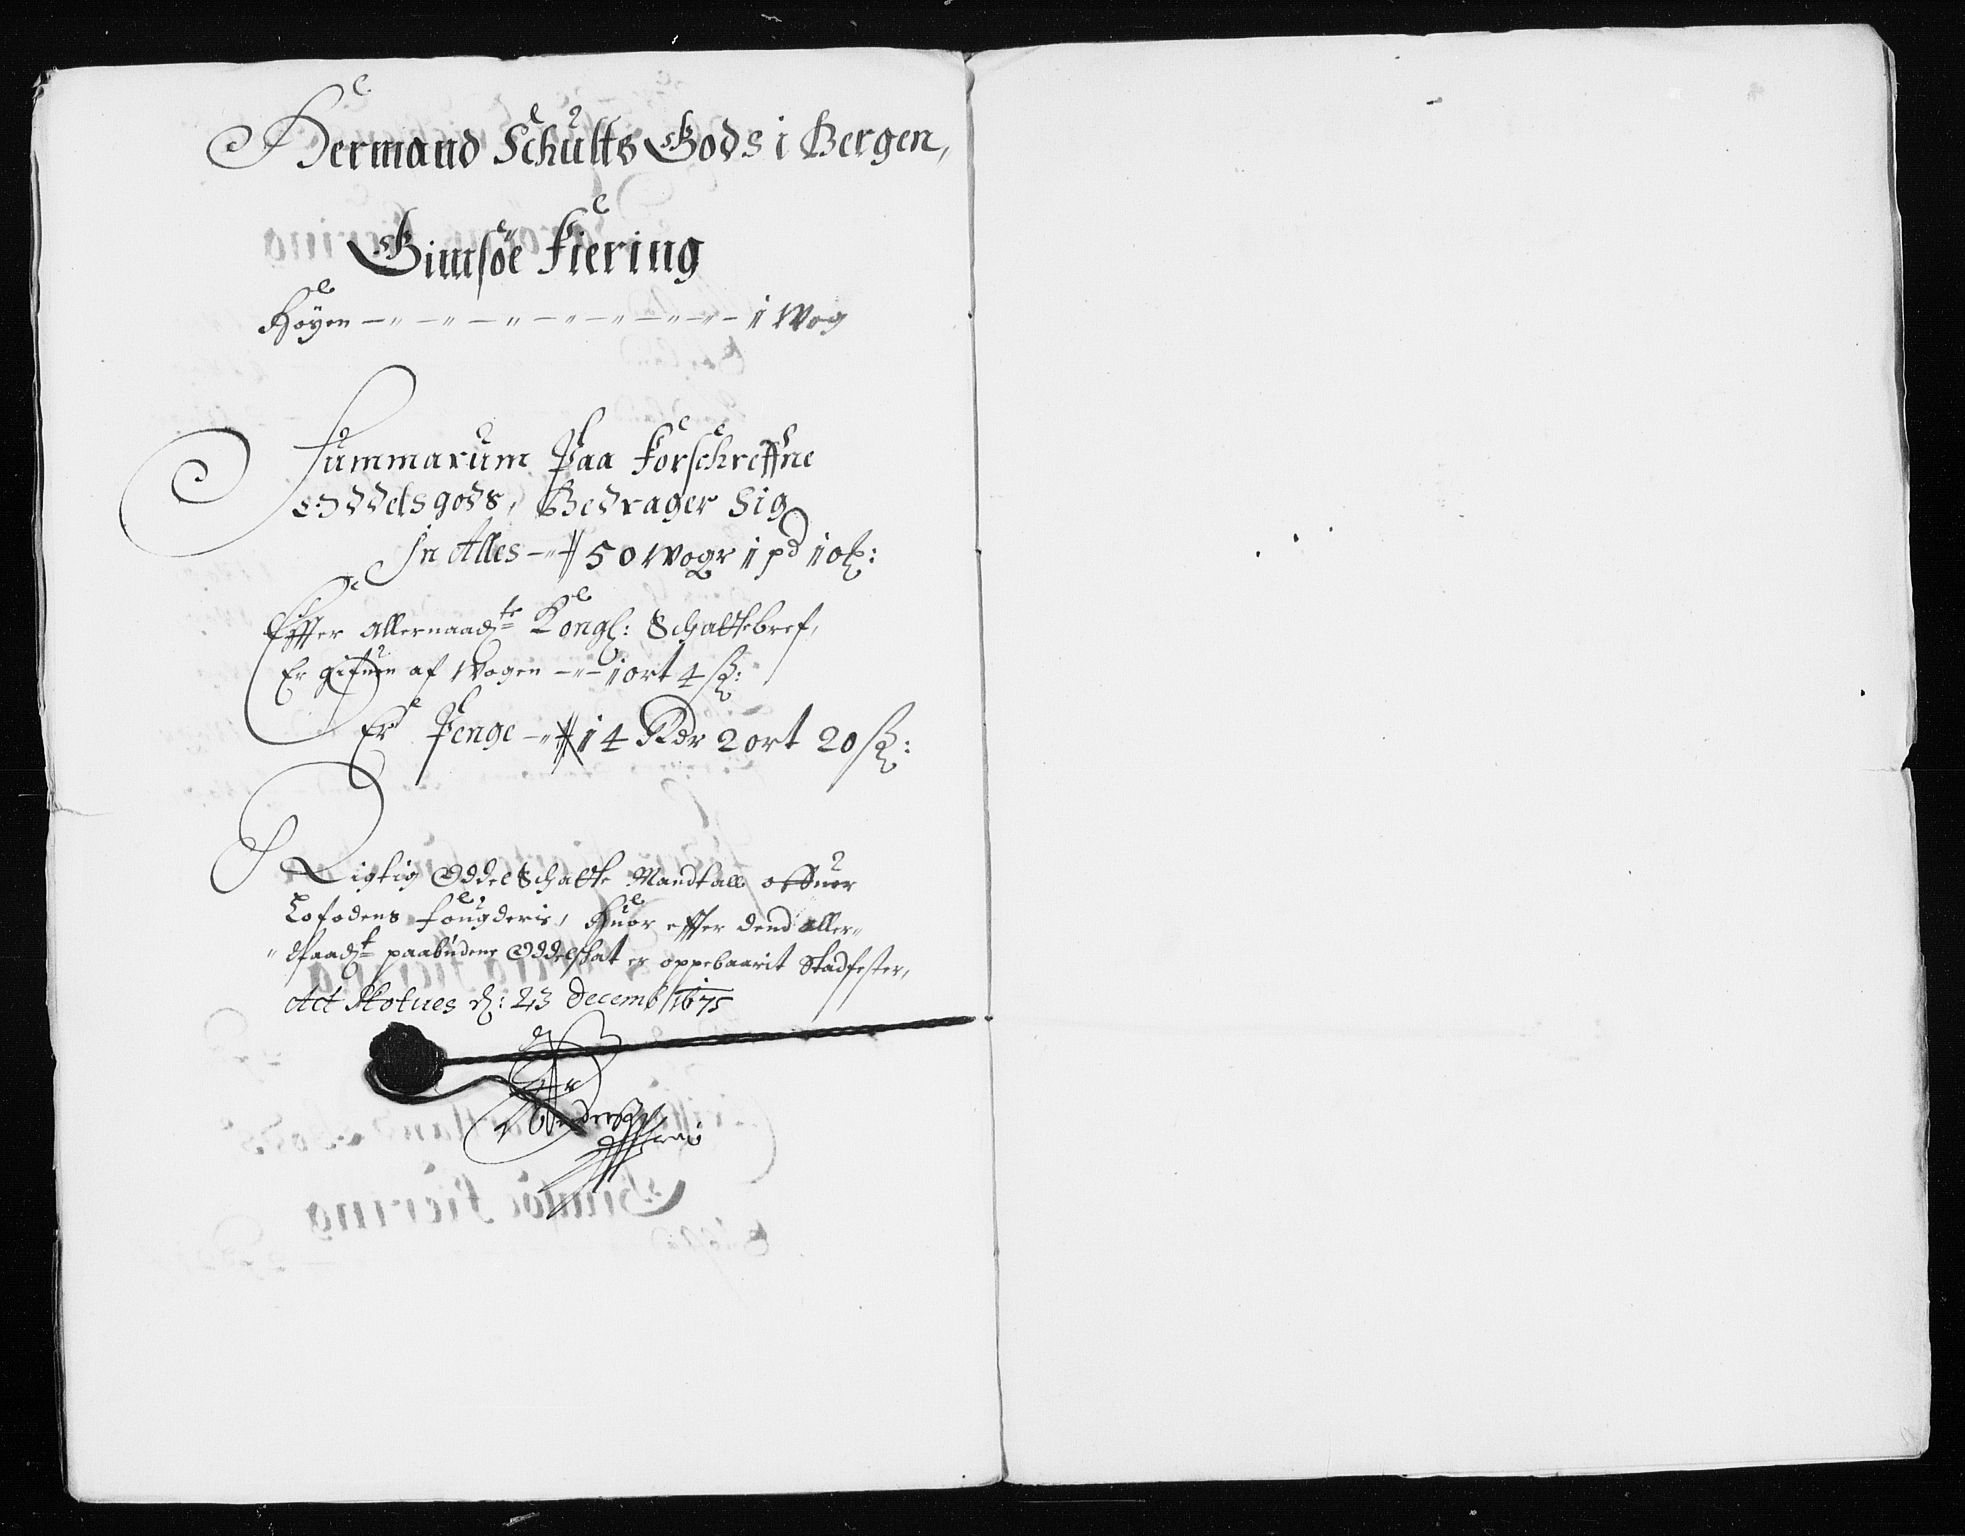 Hermand Schults Gods i Bergen,
Gimsöe Fiering
Höyen — „ — „ — „ — „ — „ — „ — 1 Wog
Summarum Paa Forschreffne
Oddelsgods, Bedrager Sig
In Alles — „ — 50 Wogr 1 pd 10 ℔:
Effter allernaadste Kongl: Schattebref,
Er gifuen af Wogen — „ — 1 ort 4 ß:
Er Penge — „ — 14 Rdr 2 ort 20 ß:
Rigtig Oddel Schatte Mandtall offuer
Lofodens fougderie, Huor effter dend aller-
Naadt paabudene Oddelskat er oppebaarit Stadfester,
Act d: 23 Decemb 1675